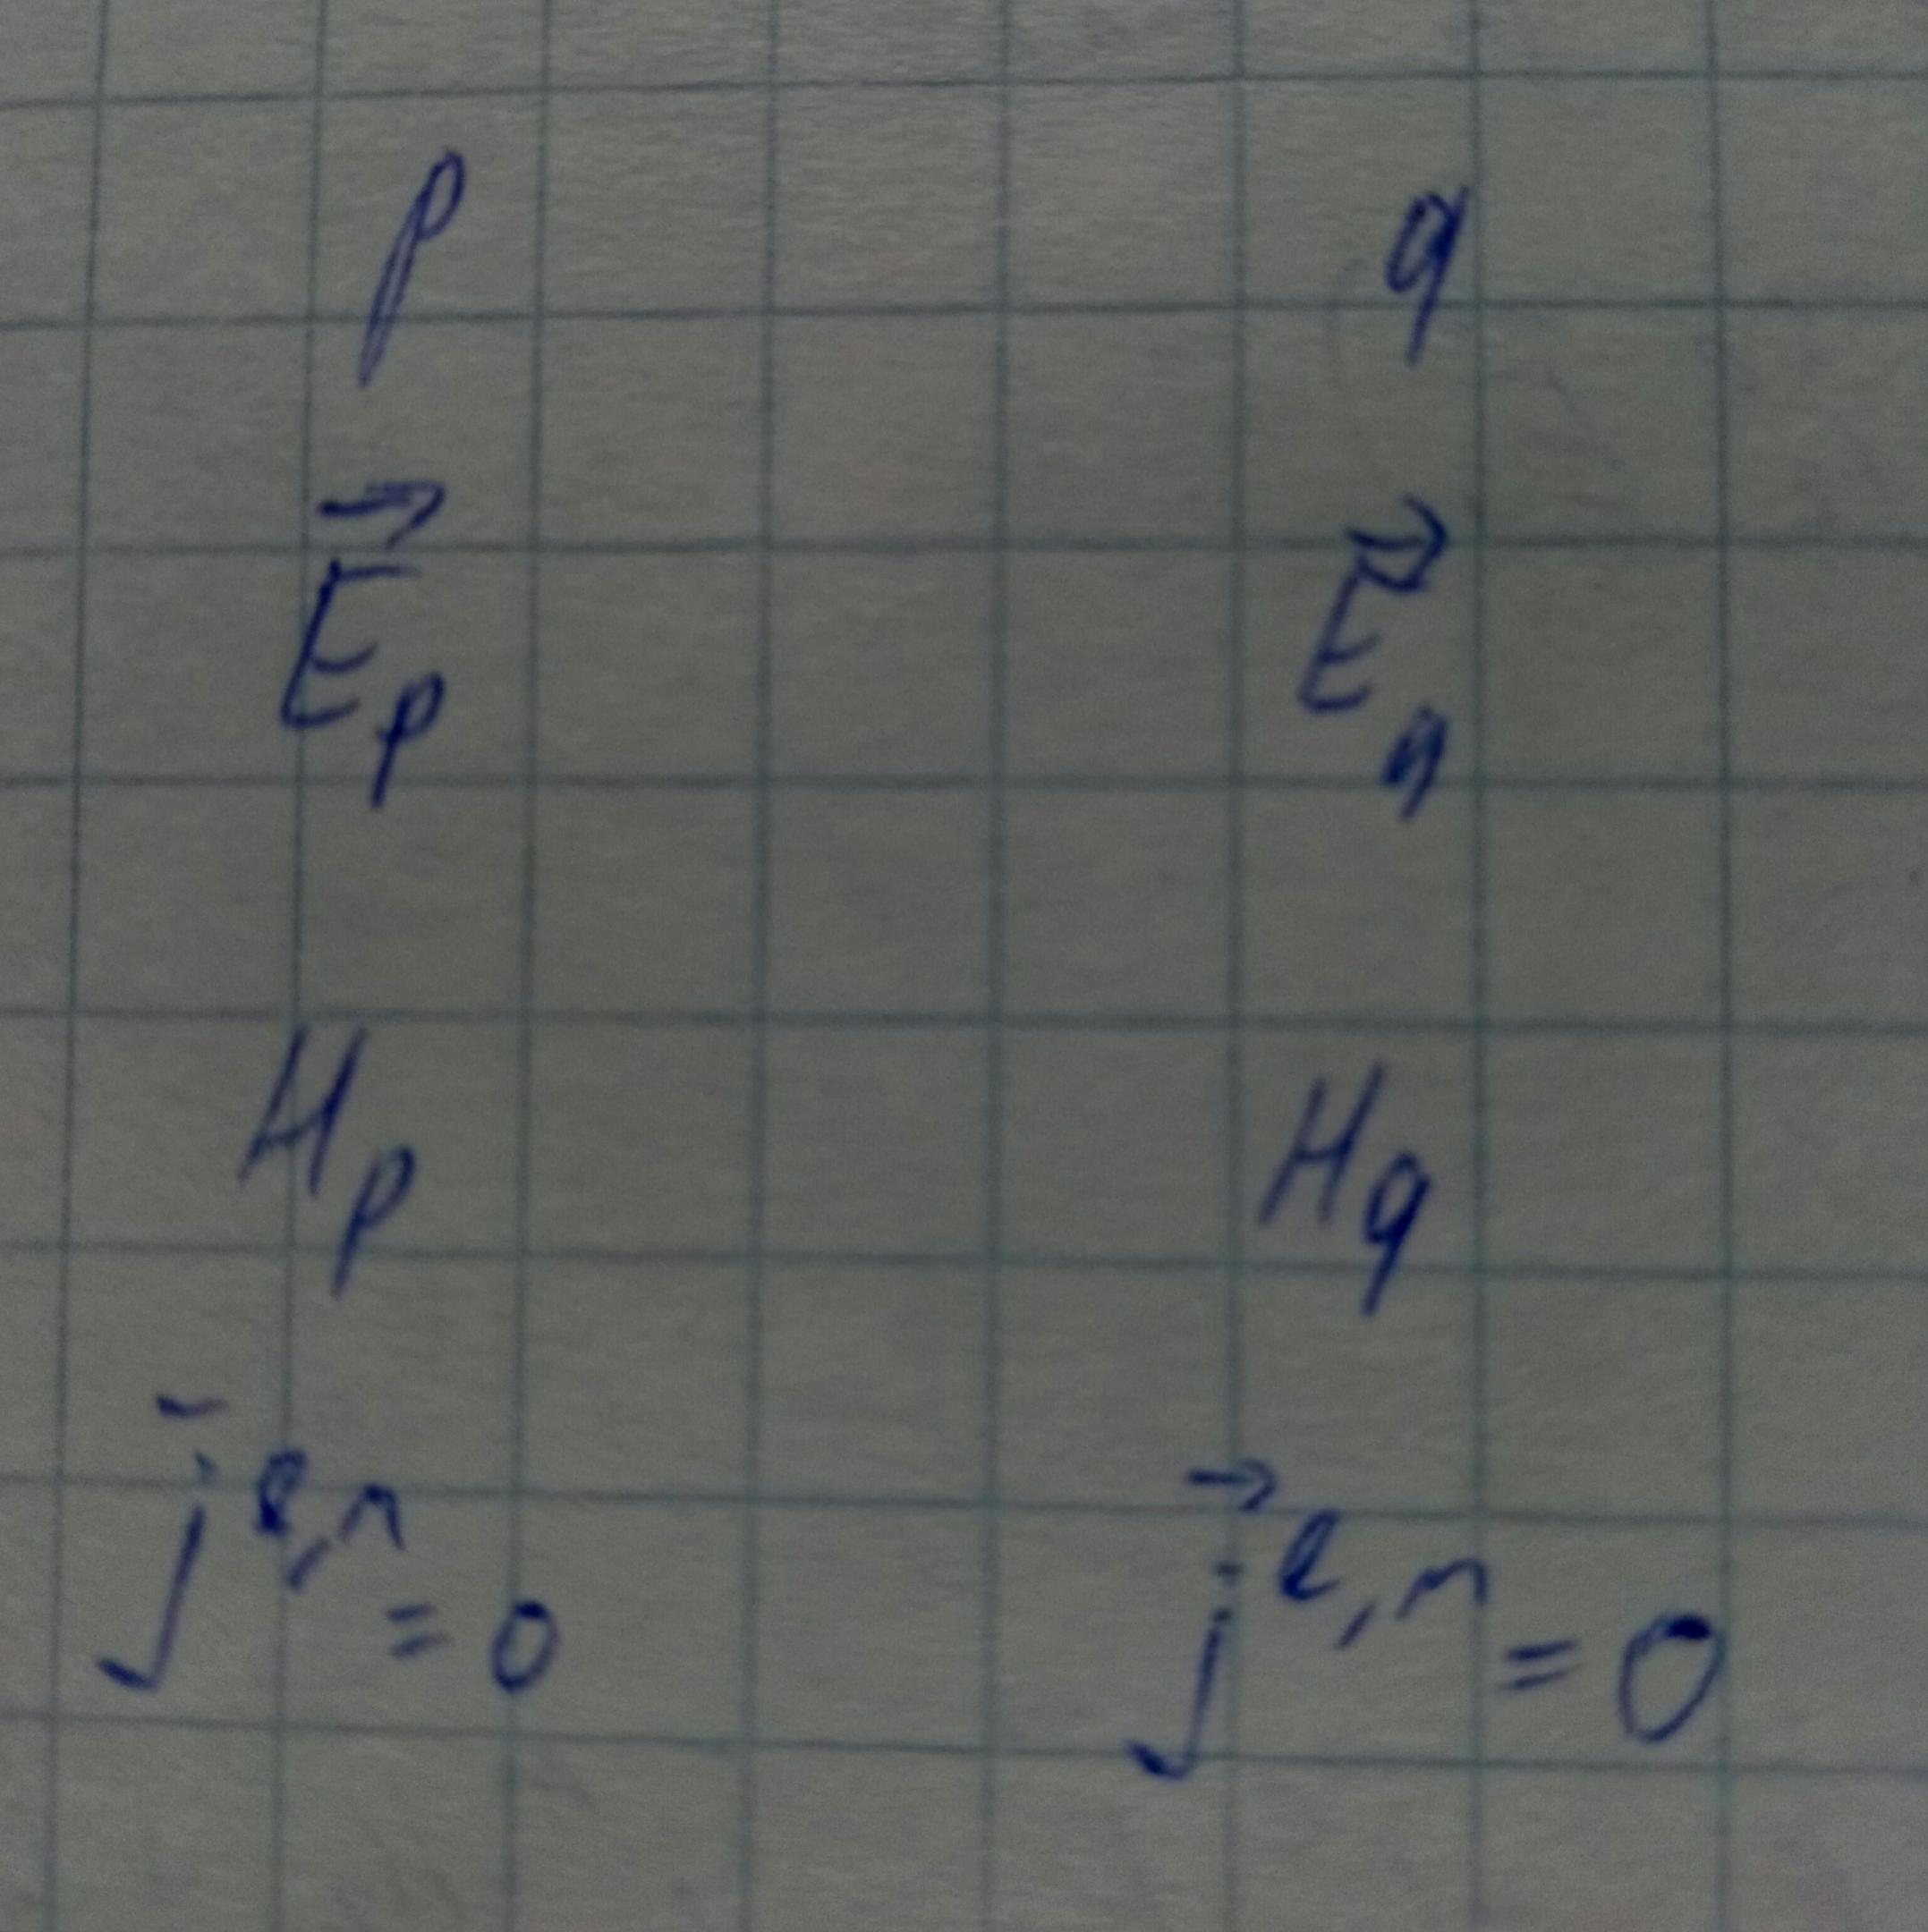 p q
E⃗p E⃗q
Hp Hq
j̄ e,m = 0 j⃗ e,m = 0